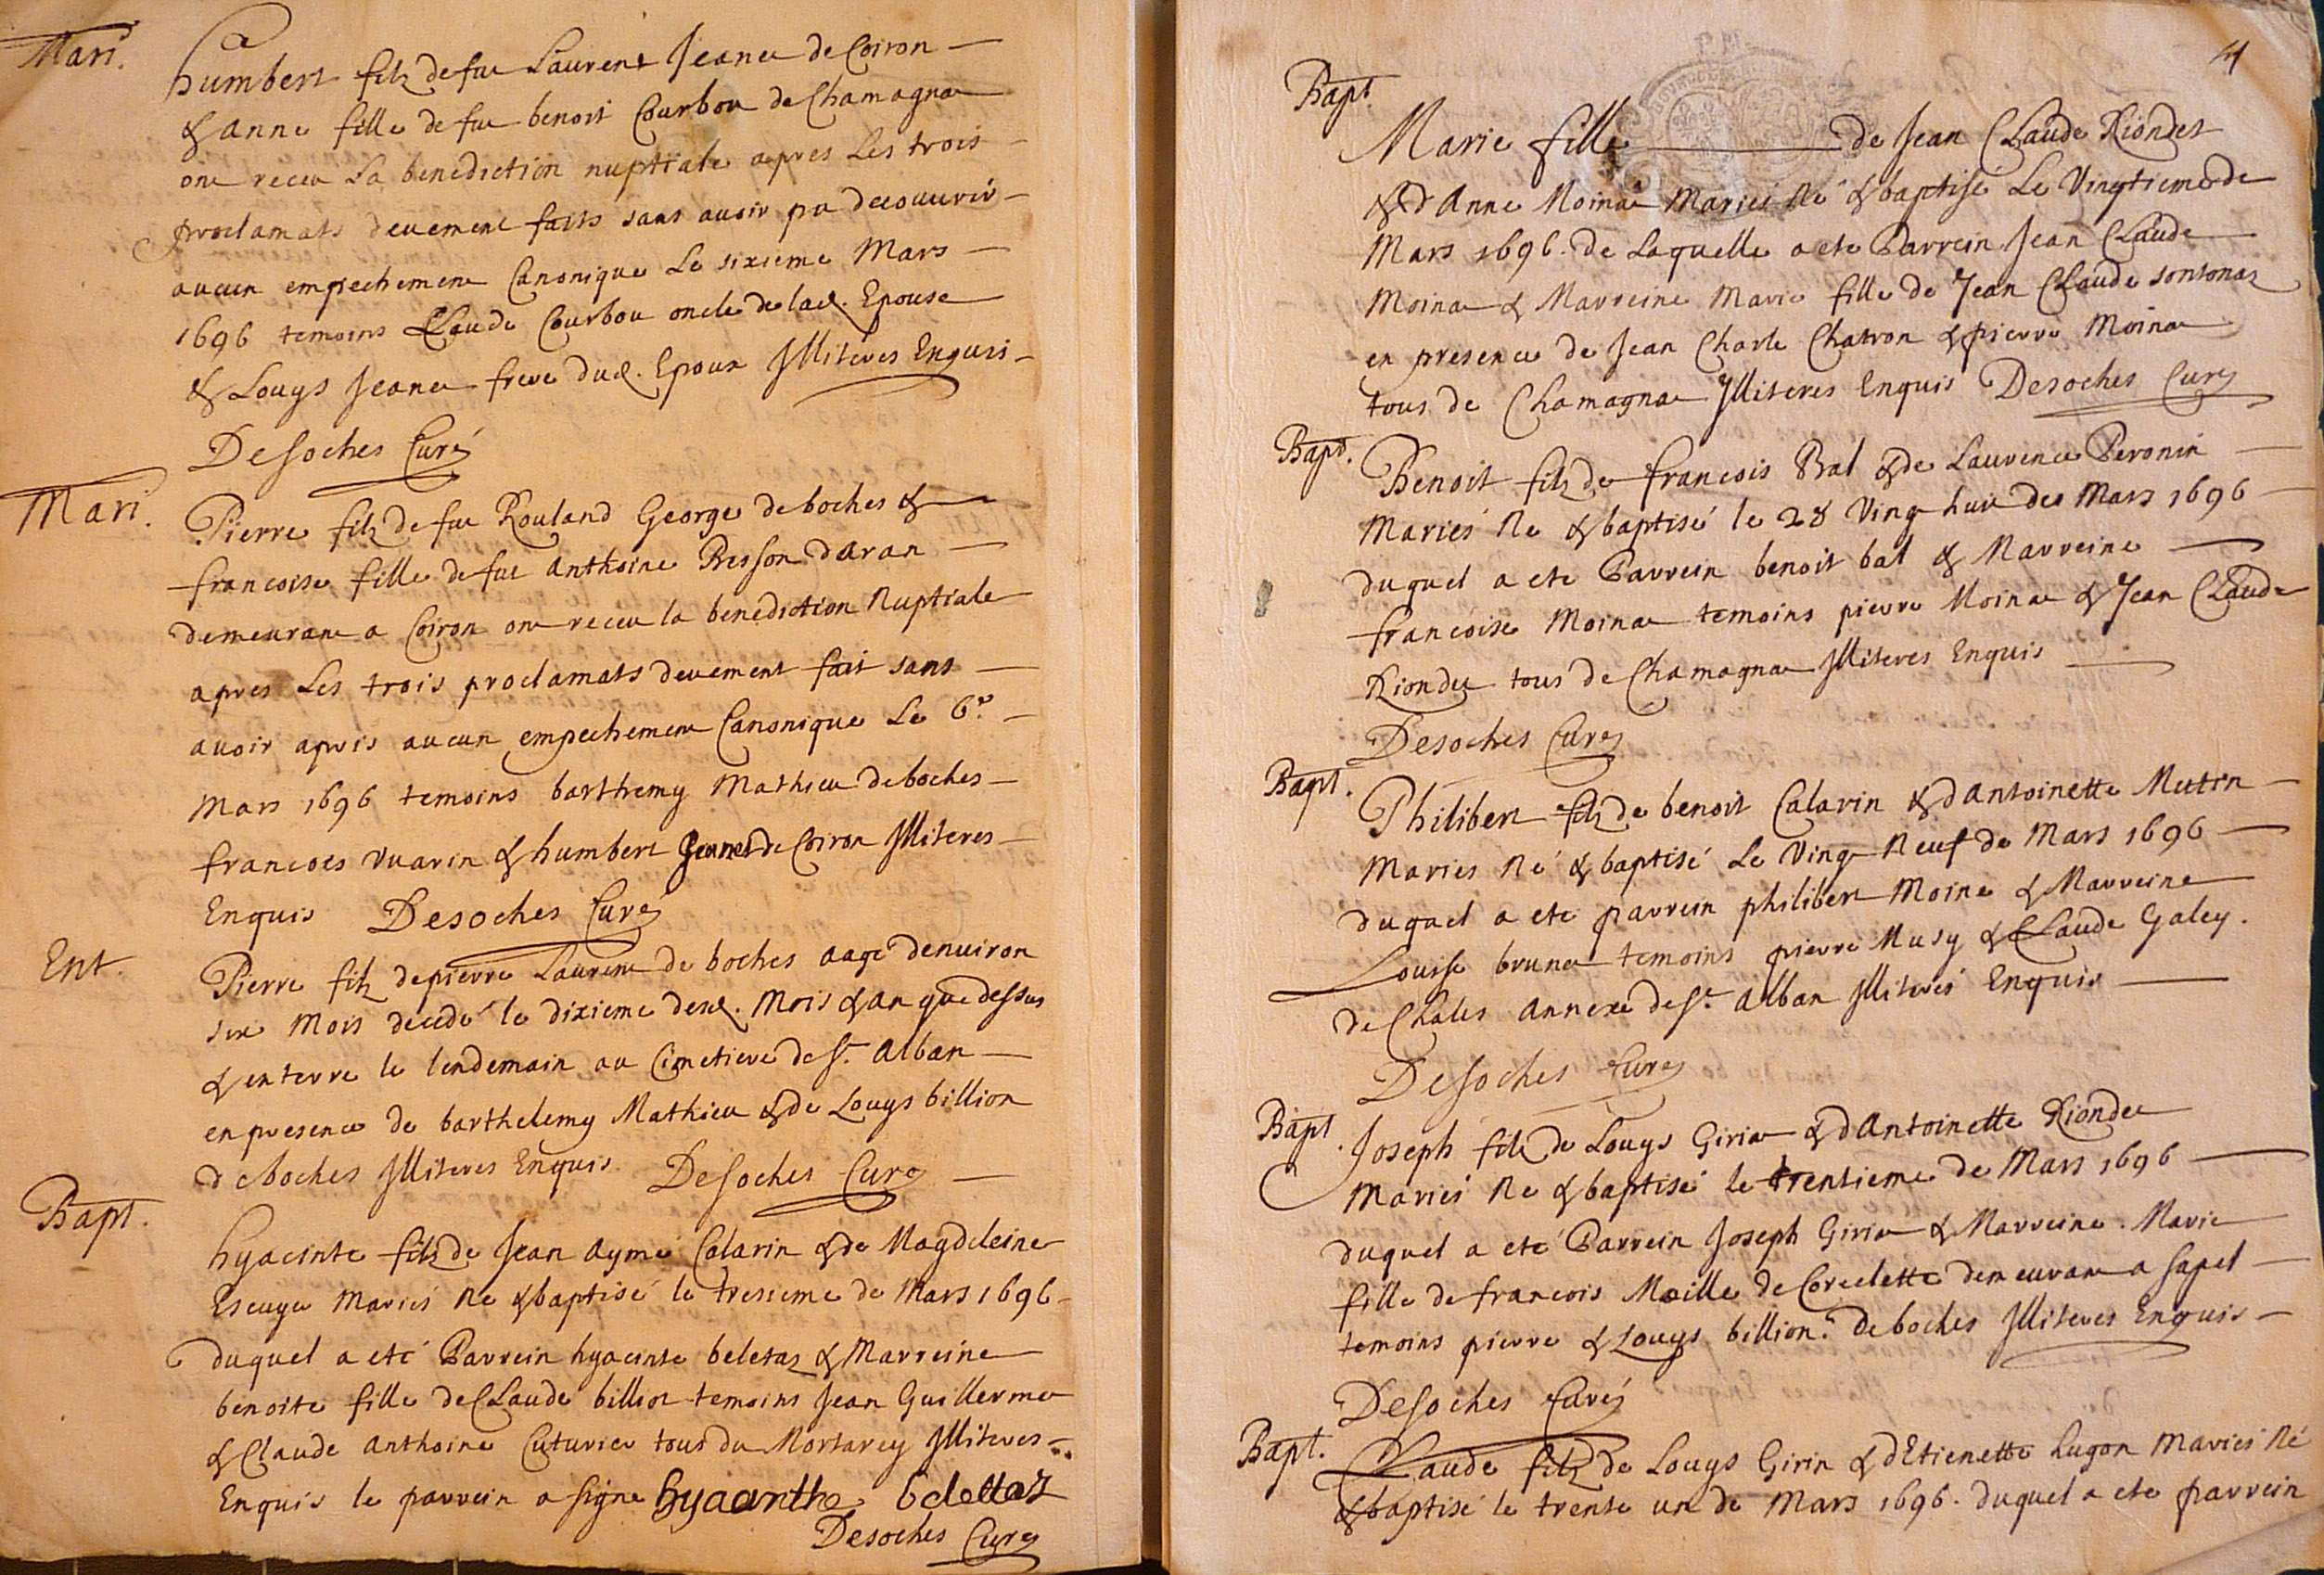 Mari.
humbert filz de fue Laurent Jeane de Coiron
& anne fille de fue benoit Courbou de Chamagna
ont receu La benediction nuptiale apres Les trois
proclamats deuement faits sans auoir pu decouurir
aucun empechement Canonique Le sixieme Mars
1696 temoins Claude Courbou oncle de lad. Epouse
& Louys Jeane frere dud. Epoux Illiteres Enquis
Desoches Curé
Mari.
Pierre filz de fue Rouland George de boches &
francoise fille de fue anthoine Besson d aran
demeurant a Coiron ont receu la benediction Nuptiale
apres Les trois proclamats deuement fait sans
auoir apris aucun empechement Canonique Le 6e
Mars 1696 temoins barthremy Mathieu de boches
francois vuarin & humbert Jeanet de Coiron Illiteres
Enquis Desoches Curé
Ent.
Pierre filz de pierre Laurent de boches aagé denuiron
six Mois decedé le dixieme desd. Mois & an que dessus
& enterre le lendemain au Cimetiere de St. alban
en presence de barthelemy Mathieu & de Louys billion
de boches Illiteres Enquis. Desoches Curé
Bapt.
hyacinte filz de Jean aymé Calarin & de Magdeleine
Escuye Mariés Ne & baptisé le tresieme de Mars 1696
duquel a eté Parrein hyacinte beletaz & Marreine
benoite fille de Claude billiot temoins Jean Guillerme
& Claude anthoine Cuturier tous du Mortarey Illiteres
Enquis le parrein a signe hyacinthe belettaz
Desoches Curé
4
Bapt.
Marie fille de Jean Claude Riondet
& d Anne Moina Mariés Né & baptisé Le Vingtieme de
Mars 1696. de Laquelle a ete Parrein Jean Claude
Moina & Marreine Marie fille de Jean Claude sontonaz
en presence de Jean Charle Chatron & pierre Moina
tous de Chamagna Illiteres Enquis Desoches Curé
Bapt.
Benoit filz de francois Bal & de Laurence Peronin
Mariés Ne & baptisé le 28 Ving huit de Mars 1696
duquel a ete Parrein benoit bal & Marreine
francoise Moina temoins pierre Moina & Jean Claude
Riondet tous de Chamagna Illiteres Enquis
Desoches Curé
Bapt.
Philibert filz de benoit Calarin & d antoinette Mutin
Mariés Né & baptisé Le Ving Neuf de Mars 1696
duquel a ete parrein philibert Moine & Marreine
Louise brune temoins pierre Musy & Claude Galey.
de Chales annexe de St. alban Illiterés Enquis
Desoches Curé
Bapt.
Joseph filz de Louys Girin & d Antoinette Riondet
Mariés Ne & baptisé le trentieme de Mars 1696
duquel a eté Parrein Joseph Girin & Marreine. Marie
fille de francois Maille de Corcelette demeurant a sapel
temoins pierre & Louys billion. de boches Illiteres Enquis
Desoches Curé
Bapt.
Claude filz de Louys Girin & d Etienette Lugon Mariés Né
& baptisé le trente un de Mars 1696. duquel a ete parrein